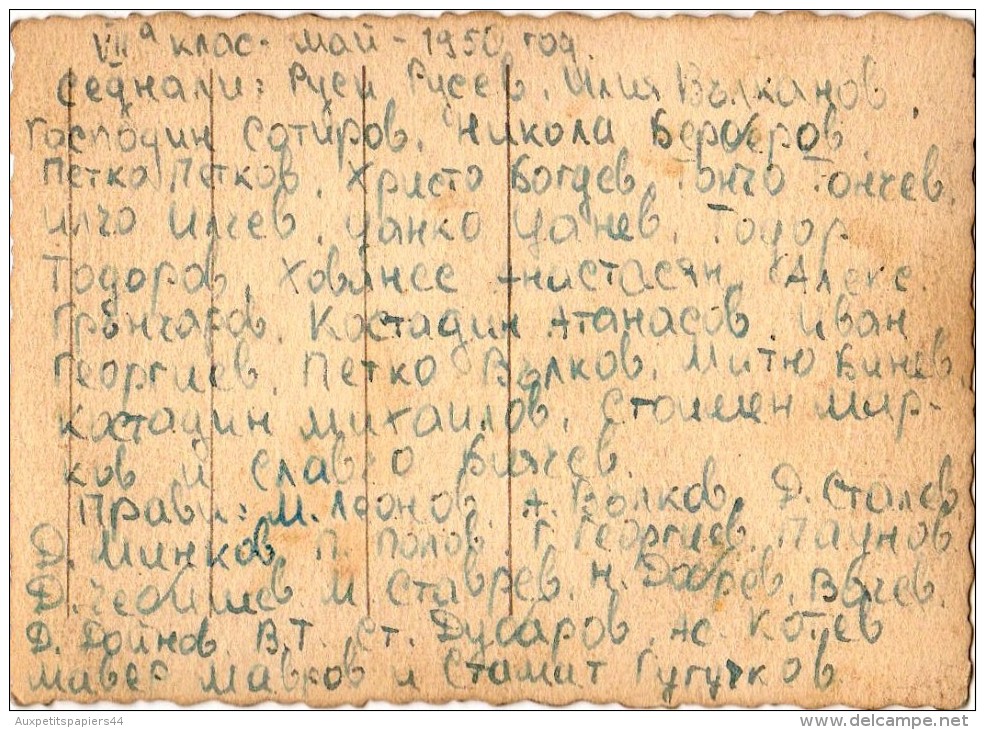 VIIа клас - май - 1950 год.
седнали: Руси Русев, Илия Вълканов,
Господин Сотиров, Никола Берберов,
Петко Петков, Христо Богдев, Гончо Гончев,
Илчо Илчев, Цанко Цанев, Тодор
Тодоров, Хованес Анистасян, Алекс.
Грънчаров, Костадин Атанасов, Иван
Георгиев, Петко Вълков, Митю Бинев,
Костадин Михаилов, Стоимен Мир-
ков и Славчо Бинчев.
Прави: М. Леонов, А. Вълков, Д. Сталев
Д. Минков, П. Попов, Г. Георгиев, Паунов
Д. Чебишев М Ставрев, Н. Добрев, Вачев,
Д. Дойнов, В.Т. Ст. Дусаров, Ас. Котев
Мавер Мавров и Стамат Гугучков
Auxpetitspapiers44
www.delcampe.net